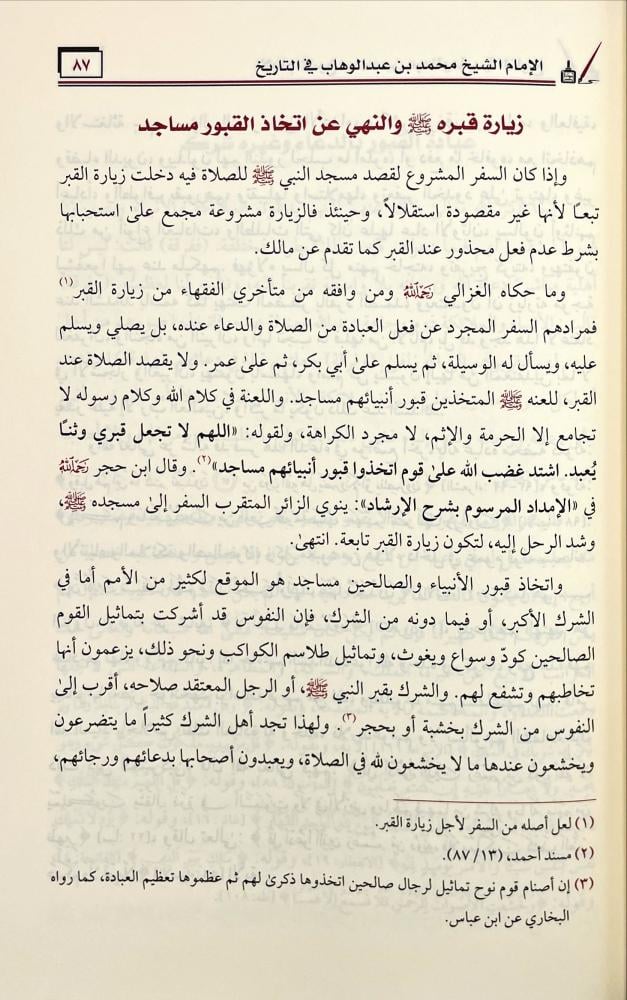 الإمام الشيخ محمد بن عبدالوهاب في التاريخ
٨٧
زيارة قبره ﷺ والنهي عن اتخاذ القبور مساجد
وإذا كان السفر المشروع لقصد مسجد النبي ﷺ للصلاة فيه دخلت زيارة القبر
تبعـًا لأنها غير مقصودة استقلالاً، وحينئذ فالزيارة مشروعة مجمع علىٰ استحبابها
بشرط عدم فعل محذور عند القبر كما تقدم عن مالك.
وما حكاه الغزالي رَحِمَهُ ٱللَّهُ ومن وافقه من متأخري الفقهاء من زيارة القبر(١)
فمرادهم السفر المجرد عن فعل العبادة من الصلاة والدعاء عنده، بل يصلي ويسلم
عليه، ويسأل له الوسيلة، ثم يسلم علىٰ أبي بكر، ثم علىٰ عمر. ولا يقصد الصلاة عند
القبر، للعنه ﷺ المتخذين قبور أنبيائهم مساجد. واللعنة في كلام الله وكلام رسوله لا
تجامع إلا الحرمة والإثم، لا مجرد الكراهة، ولقوله: «اللهم لا تجعل قبري وثنـًا
يُعبد. اشتد غضب الله علىٰ قوم اتخذوا قبور أنبيائهم مساجد»(٢). وقال ابن حجر رَحِمَهُ ٱللَّهُ
في «الإمداد المرسوم بشرح الإرشاد»: ينوي الزائر المتقرب السفر إلىٰ مسجده ﷺ،
وشد الرحل إليه، لتكون زيارة القبر تابعة. انتهىٰ.
واتخاذ قبور الأنبياء والصالحين مساجد هو الموقع لكثير من الأمم أما في
الشرك الأكبر، أو فيما دونه من الشرك، فإن النفوس قد أشركت بتماثيل القوم
الصالحين كودّ وسواع ويغوث، وتماثيل طلاسم الكواكب ونحو ذلك، يزعمون أنها
تخاطبهم وتشفع لهم. والشرك بقبر النبي ﷺ، أو الرجل المعتقد صلاحه، أقرب إلىٰ
النفوس من الشرك بخشبة أو بحجر(٣). ولهذا تجد أهل الشرك كثيراً ما يتضرعون
ويخشعون عندها ما لا يخشعون لله في الصلاة، ويعبدون أصحابها بدعائهم ورجائهم،
(١) لعل أصله من السفر لأجل زيارة القبر.
(٢) مسند أحمد، (١٣/ ٨٧).
(٣) إن أصنام قوم نوح تماثيل لرجال صالحين اتخذوها ذكرىٰ لهم ثم عظموها تعظيم العبادة، كما رواه
البخاري عن ابن عباس.